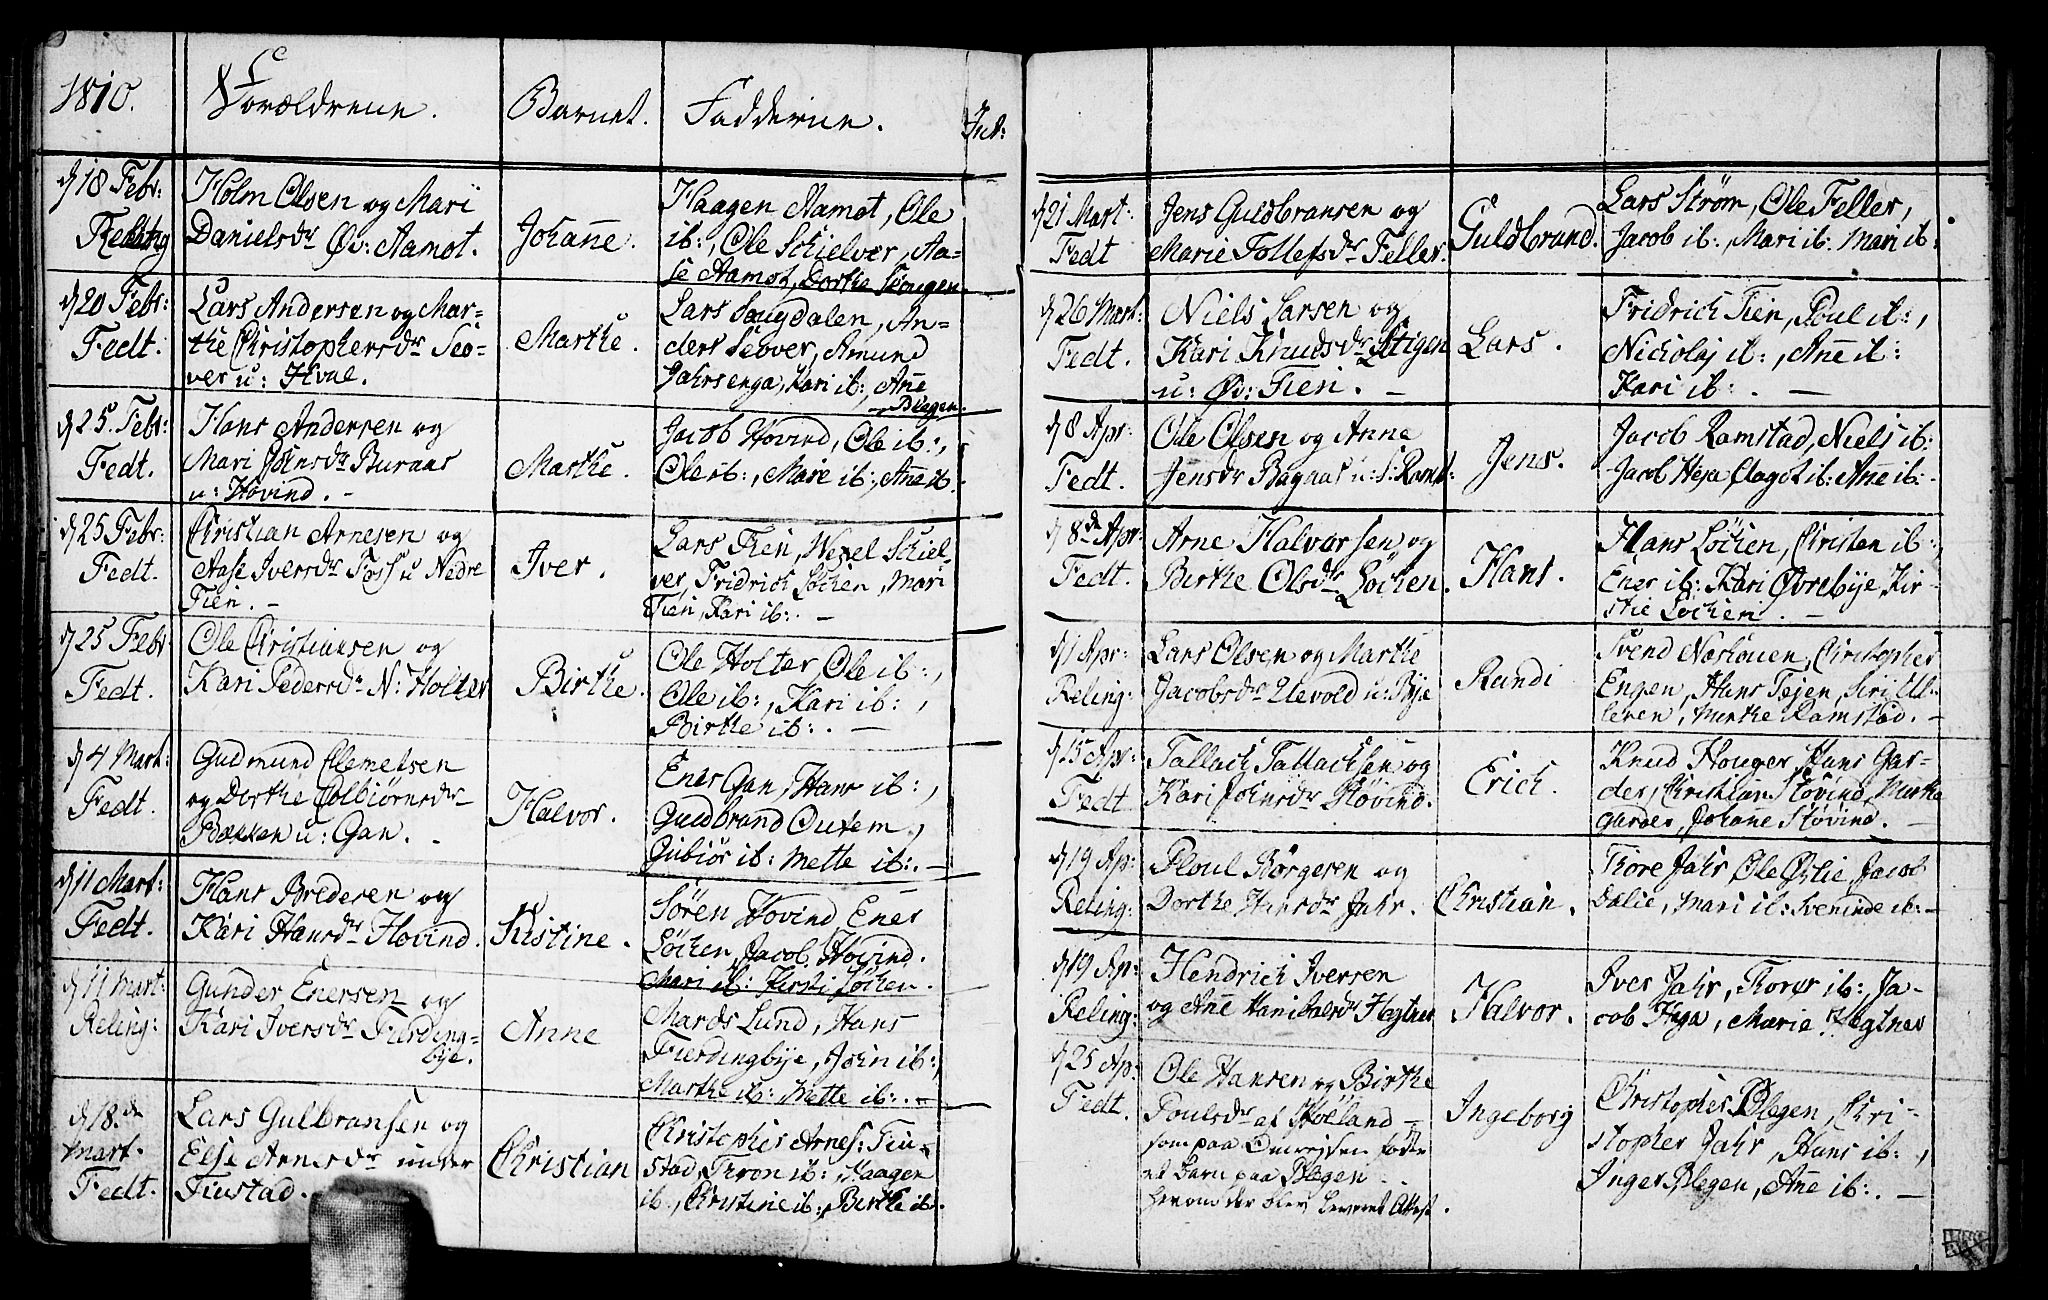 1810.
Forældrene.
Barnet.
Fadderne.
Int:
d 18 Febr:
Reling
Holm Olsen og Mari
Danielsdr Øv: Aamot.
Johanne.
Haagen Aamot, Ole
ib:, Ole Schielver, Aa-
se Aamot, Dorthe Skougen
d 20 Febr:
Fedt.
Lars Andersen og Mar-
the Christophersdr Seo-
ver u: Hval.
Marthe.
Lars Saugdalen, An-
ders Seover, Amund
Jahrsenga, Kari ib:, Anne
Blegen.
d 25 Febr:
Fedt.
Hans Andersen og
Mari Johnsdr Buraas
u: Hovind. -
Marthe.
Jacob Hovind, Ole ib:,
Ole ib:, Marie ib:, Anne ib.
d 25 Febr:
Fedt.
Christian Arnesen og
Aase Iversdr Foss u Nedre
Tien. -
Iver.
Lars Tien, Nezel Schiel
ver, Fridrich Løchen, Mari
Tien, Kari ib:. -
d 25 Febr
Fedt.
Ole Christiansen og
Kari Pedersdr N: Holter
Birthe.
Ole Holter, Ole ib:,
Ole ib:, Kari ib:,
Birthe ib:. -
d 4 Mart:
Fedt.
Gudmund Clemetsen
og Dorthe Colbiørnsdr
Bækken u: Gan. -
Halvor.
Ener Gan, Hans ib:,
Guldbrand Outem.,
Gubiør ib: Mette ib:. -
d 11 Mart:
Fedt.
Hans Bredesen og
Kari Hansdr Hovind.
Kistine.
Søren Hovind, Ener
Løchen, Jacob Hovind.
Mari ib: Kirsti Løchen.
d 11 Mart:
Reling:
Gunder Enersen og
Kari Iversdr Fierding-
bye.
Anne
Mards Lund, Hans
Fierdingbye, John ib:,
Marthe ib: Mette ib:. -
d 18.de
Mart.
Fedt.
Lars Gulbransen og
Else Arnesdr under
Tiustad.
Christian
Christopher Arnes: Tiu-
stad, Thron ib:, Haagen
ib:, Christine ib:, Birthe ib.
d 21 Mart:
Fedt
Jens Guldbransen og
Marie Tollefsdr Feller.
Guldbrand.
Lars Strøm, Ole Feller,
Jacob ib:, Mari ib: Mari ib:
d 26 Mart:
Fedt.
Niels Larsen og
Kari Knudsdr Stigen
u: Øv: Tien. -
Lars.
Fridrich Tien, Poul ib:,
Nickolaj ib:, Anne ib:
Kari ib:. -
d 8 Apr:
Fedt.
Ole Olsen og Anne
Jensdr Bagaas u: S: Ramst:
Jens.
Jacob Ramstad, Niels ib:
Jacob Heja Aagot ib: Anne ib: -
d 8de Apr:
Fedt.
Arne Halvorsen og
Birthe Olsdr Løchen.
Hans.
Hans Løchen, Christen ib:
Ener ib: Kari Øvrebye, Kir-
stie Løchen. -
d 1 Apr:
Reling:
Lars Olsen og Marthe
Jacobsdr Uevold u: Bye
Randi
Svend Naskouen, Christopher
Engen, Hans Tejen, Siri Ul-
leren, Mirthe Ramstad. -
d 15 Ap:
Fedt
Tallach Tallachsen og
Kari Johnsdr Støvind.
Erich.
Knud Houger, Hans Gar-
der, Christian Støvind, Mirthe
Garder, Johane Støvind. -
d 19 Ap:
Reling:
Poul Børgesen og
Dorthe Hansdr Jahr.
Christian.
Thore Jahr Ole Østie, Jacob
Dalie, Mari ib: Sveninde ib: -
d 19 Ap:
Reling:
Hendrich Iversen
og Anne Hanibalsdr Hegtner
Halvor.
Iver Jahr, Thorer ib:, Ja-
cob Haga, Marie Hegtner
d 25 Ap:
Fedt.
Ole Hansen og Birthe
Poulsdr af Høland -
som paa Omrejsen fødte
et Barn paa Blegen -
hvorom der blev leveret Attest.
Ingeborg
Christopher Blegen, Chri-
stopher Jahr, Hans ib:,
Inger Blegen, Ane ib:. -